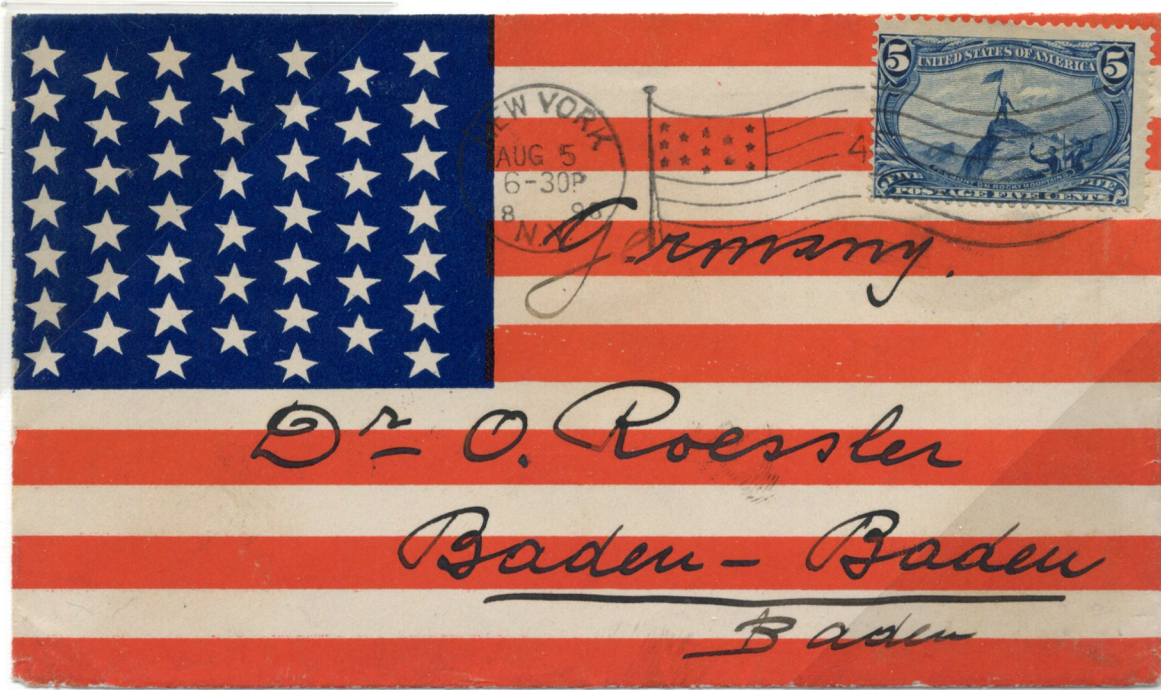 NEW YORK
AUG 5
6-30P
8 98
N.Y.
4
5 UNITED STATES OF AMERICA 5
FIVE FIVE
POSTAGE FIVE CENTS
Germany.
Dr O. Roessler
Baden-Baden
Baden